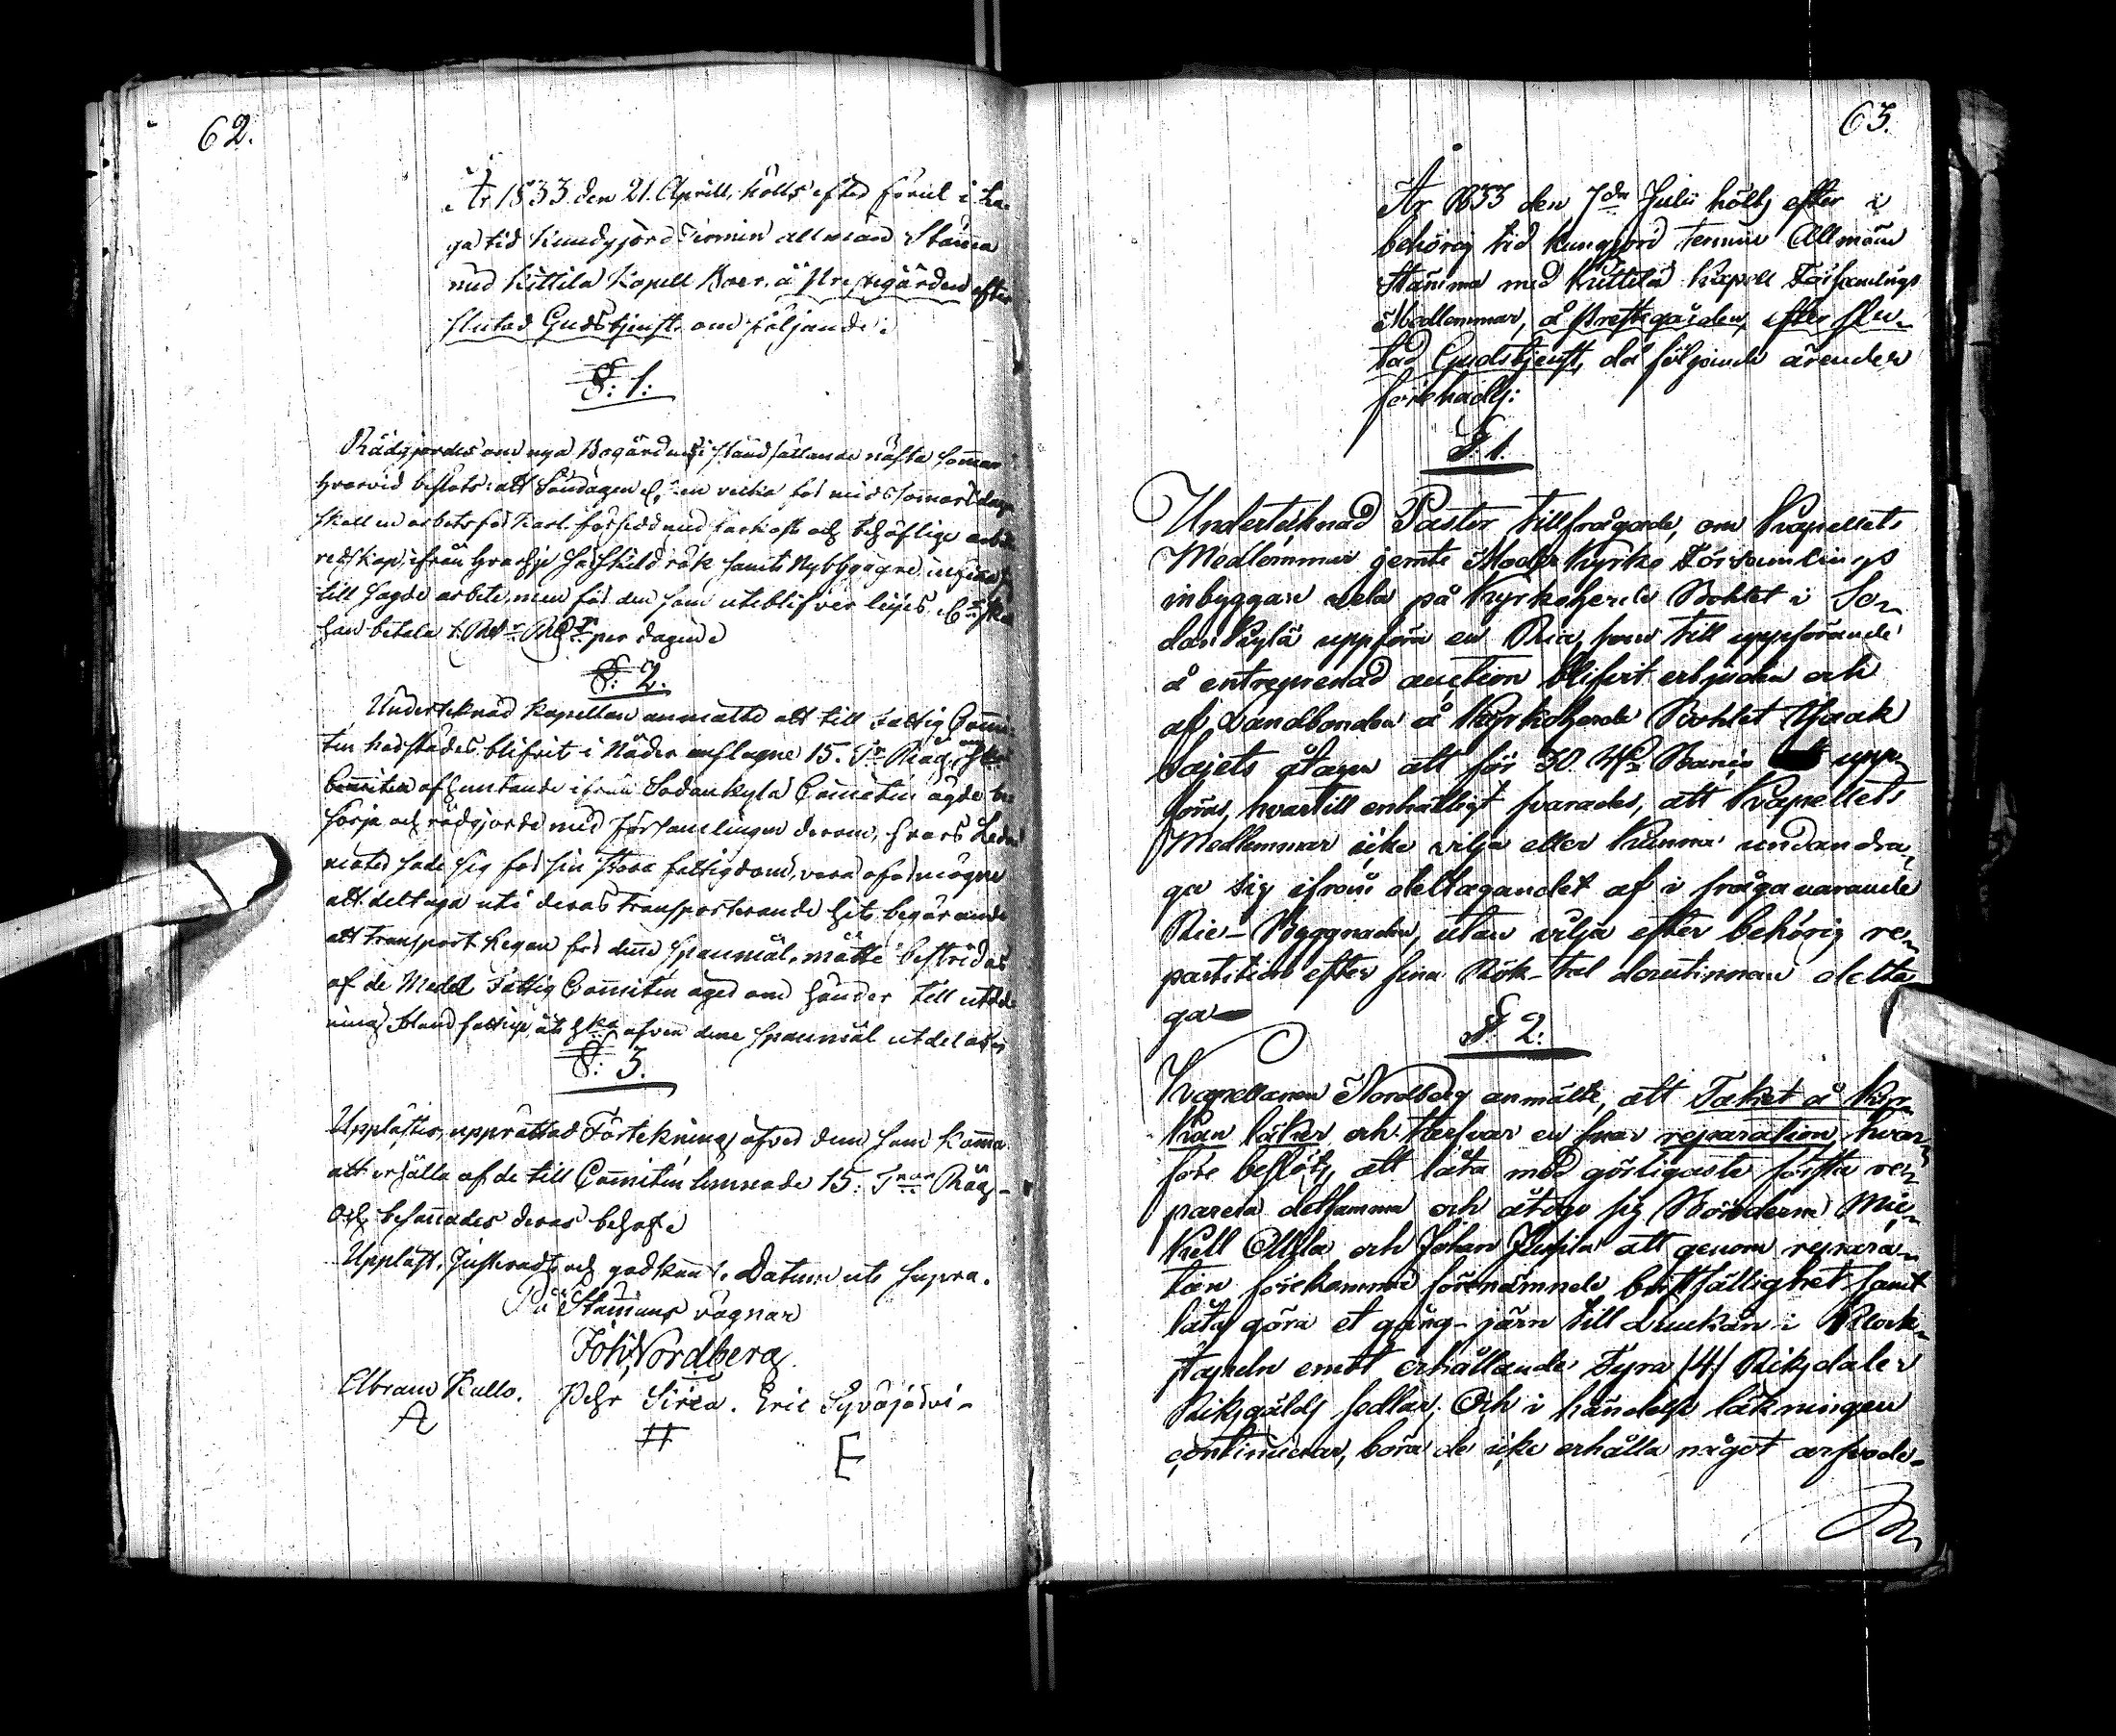 62.
År 1833 den 21. Aprill, hölls efter förut i la-
ga tid kundgjord Termin allmän Stämma
med Kittilä Kapell Boer, å Prestgården efter
slutad Gudstjenst, om följande:
§: 1:
Rådgjordes om nya Bogårdens i stånd sättande nästa sommar
hvarvid beslöts: att Söndagen en vecka för midsommarsdag
skall en arbetsför Karl försedd med och behöflige arbets
redskap, ifrån hvarje rök samt Nybyggare
till sagde arbete, men för den som uteblifver skal
han betala 1. Rd:r per dagen
§: 2.
Underteknad Kapellan anmälte att till Fattig Commi-
ten härstädes blifvit i Nåder anslagne 15. T:r Råg,
Comiten afhemtande ifrån Sodankylä Comiten ägde be-
sörja och rådgjorde med Församlingen derom, hvars Leda-
möter sade sig för sin stora fattigdom, vara oförmögne
att deltaga uti deras transporterande hit, begärande
att transport Legan för denne spanmål, måtte bestridas
af de Medel Fattig Comiten äger om händer till utdel-
ning bland fattige, åt hka afven denne spanmål utdelas
§: 3.
Upplästes, upprättad Förtekning öfver dem som komma
att erhålla af de till Comiten lemnade 15: T:nor Råg-
och besannades deras behof.
Uppläst, Justeradt och godkänt. Datum ut supra.
På Stämmans vägnar
Joh: Nordberg.
Abram Kallo. Pehr Sirca. Eric Syväjärvi-
A # E
63.
År 1833 den 7de Julii hölts efter i
behörig tid kungjord termin Allmän
Stämma med Kittilä Kapell Församlings
Medlemmar, å Prestgården, efter slu-
tad Gudstjenst, då följande ärender
förehades:
§. 1.
Undertecknad Pastor tillfrågade, om Kapellets
Medlemmar jemte Moder Kyrko Församlings
inbyggare vela på Kyrkoherde Bohlet i So-
dankylä uppföra en Ria, som till uppförande
å entreprenad auction blifvit erbjuden och
af Landbonden å Kyrkoherde Bohlet Isaak
Sajets åtagen att för 30 Banco upp-
föras, hvartill enhälligt svarades, att Kapellets
Medlemmar icke vilja eller kunna undandra-
ga sig ifrån deltagandet af i fråga varande
Rie-Byggnaden, utan vilja efter behörig re-
partition efter sina Rök-tal derutinnan delta
ga
§. 2:
Kapellanen Nordberg anmälte, att Taket å Kyr-
kan läker och tarfvar en snar reparation, hvar-
före beslöts, att låta med görligaste första re-
parera detsamma och åtogo sig Bönderne Mic-
kell Ollila och Johan Jussila att genom repara-
tion förekomma förenämnde bristfällighet samt
låta göra et gång-järn till Luckan i Klock-
stapeln emot erhållande Fyra /4/ Riksdaler
Riksgälds sedlar; Och i händelse läkningen
continuerar, böra de icke erhålla något arfvode.